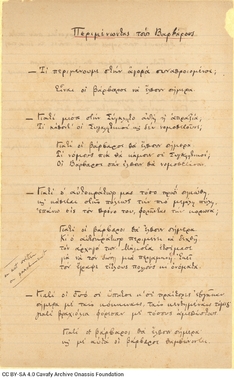 Περιμένοντας τους Βαρβάρους.
— Τι περιμένουμε στην αγορά συναθροισμένοι;
Είναι οι βάρβαροι να φθάσουν σήμερα
— Γιατί μέσα στην Σύγκλητο αυτή η απραξία;
Τι κάθοντ' οι Συγκλητικοί και δεν νομοθετούνε;
Γιατί οι βάρβαροι θα φθάσουν σήμερα
Τι νόμους πια θα κάμουν οι Συγκλητικοί;
Οι βάρβαροι σαν έλθουν θα νομοθετήσουν.
— Γιατί ο αυτοκράτωρ μας τόσο πρωί σηκώθη,
και κάθεται στης πόλεως την πιο μεγάλη πύλη
στον θρόνο επάνω, φορώντας την κορώνα;
Γιατί οι βάρβαροι θα φθάσουν σήμερα
Κι ο αυτοκράτωρ περιμένει να δεχθεί
τον αρχηγό τους. Μάλιστα ετοίμασε
για να τον δώσει μια περγαμηνή. Εκεί
τον έγραψε τίτλους πολλούς κι ονόματα.
— Γιατί οι δυο μας ύπατοι κ' οι πραίτορες εβγήκαν
σήμερα με τες κόκκινες, τες κεντημένες τόγες
γιατί βραχιόλια φόρεσαν με τόσους αμεθύστους
Γιατί οι βάρβαροι θα φθάσουν σήμερα
CC BY-SA 4.0 Cavafy Archive Onassis Foundation